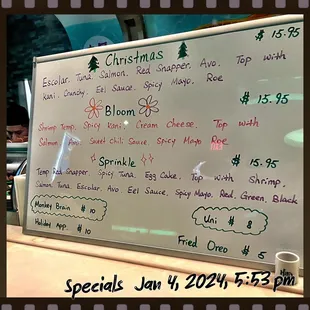 Christmas $ 15.95
Escolar. Tuna. Salmon. Red Snapper. Avo. Top with
Kani. Crunchy. Eel Sauce. Spicy Mayo. Roe
Bloom $ 15.95
Shrimp Temp. Spicy Kani. Cream Cheese. Top with
Salmon. Avo. Sweet Chili Sauce. Spicy Mayo Roe
Sprinkle $ 15.95
Temp Red Snapper. Spicy Tuna. Egg Cake. Top with Shrimp.
Salmon. Tuna. Escolar. Avo Eel Sauce. Spicy Mayo. Red. Green. Black
Monkey Brain $ 10
Uni $ 8
Holiday App. $ 10
Fried Oreo $ 5
Specials Jan 4, 2024, 5:53 pm